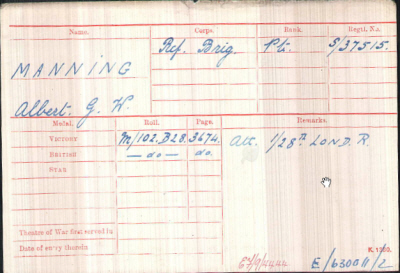 Name. Corps. Rank. Regtl. No.
MANNING Rif. Brig. Pte. S/37515.
Albert G. W.
Medal. Roll. Page. Remarks.
VICTORY M/102.B28. 3674. Att. 1/28th LOND. R.
BRITISH — do — do.
STAR
Theatre of War first served in
Date of entry therein
K. 1380.
E/6300